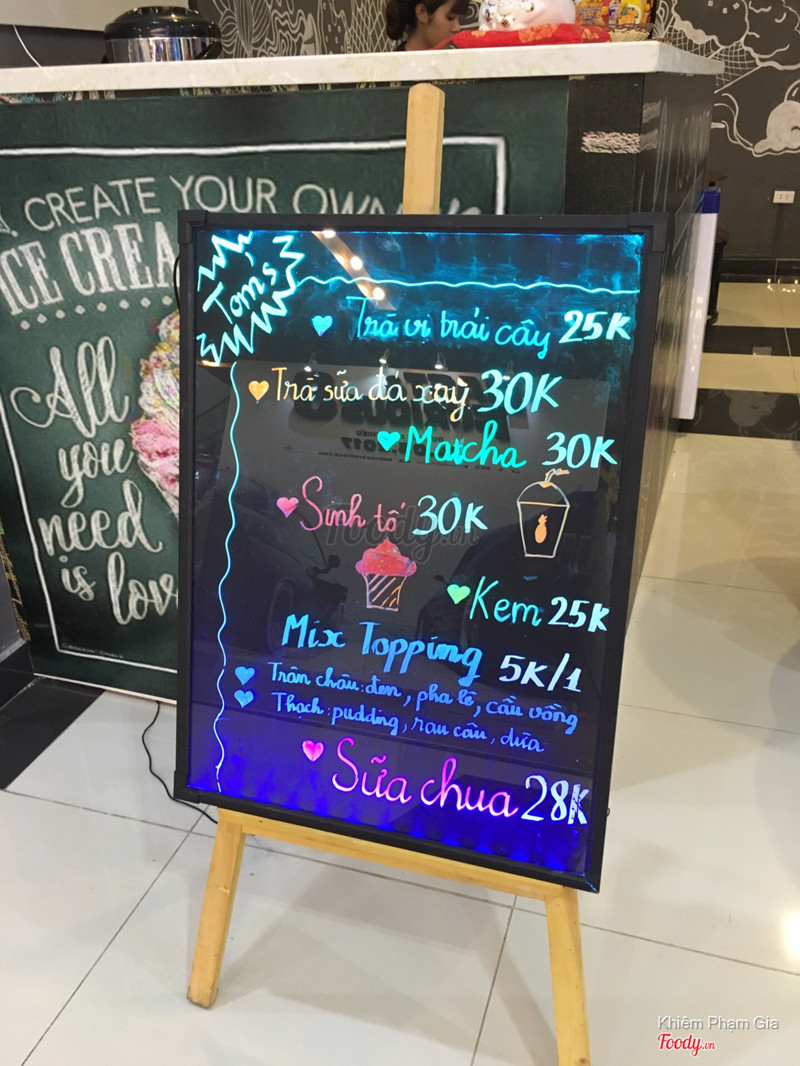 CREATE YOUR OWN
ICE CREA
All
you
need
is lov
Tom's
Trà vị trái cây 25K
Trà sữa đá xay 30K
Matcha 30K
Sinh tố 30K
Kem 25K
Mix Topping 5K/1
Trân châu: đen, pha lê, cầu vồng
Thạch: pudding, rau câu, dừa
Sữa chua 28K
Foody.vn
Khiêm Phạm Gia
Foody.vn